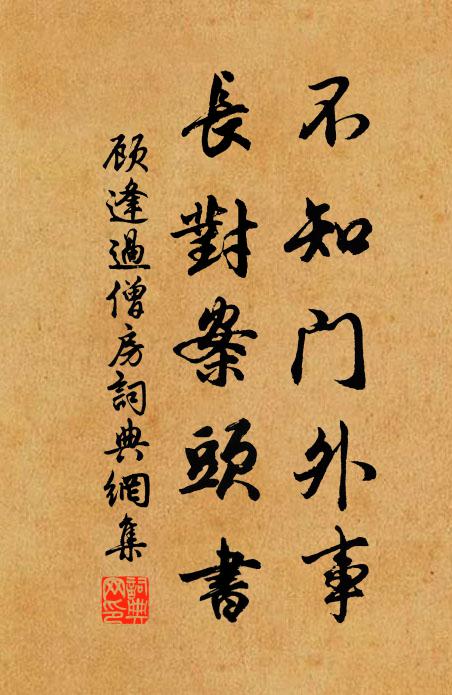 不知门外事
長對案頭書
顾逢過僧房詞典網集
詞典網印